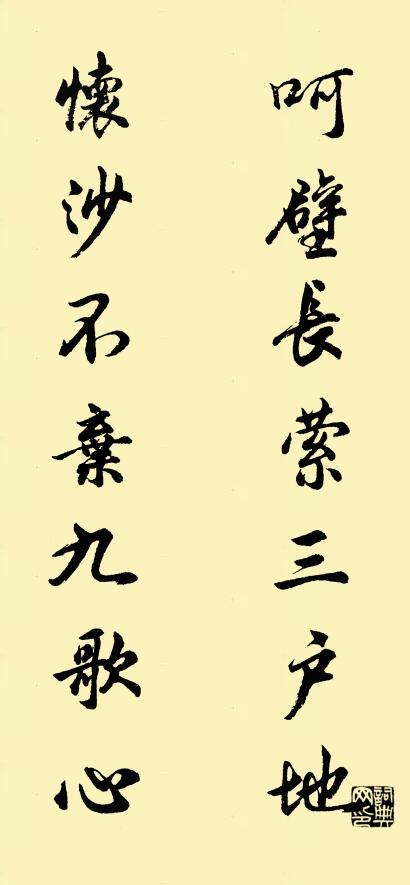 呵壁長萦三户地
懷沙不棄九歌心
詞典网印